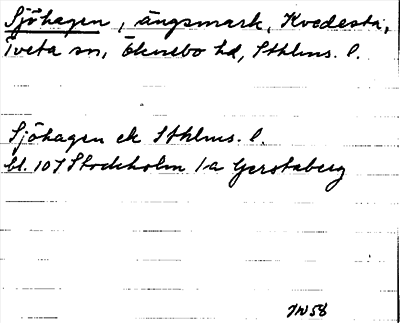 Sjöhagen, ängsmark, Kvedesta,
Tveta sn, Öknebo hd, Sthlms. l.
Sjöhagen ek Sthlms. l.
bl. 10 I Stockholm 1a Gerstaberg
JW58